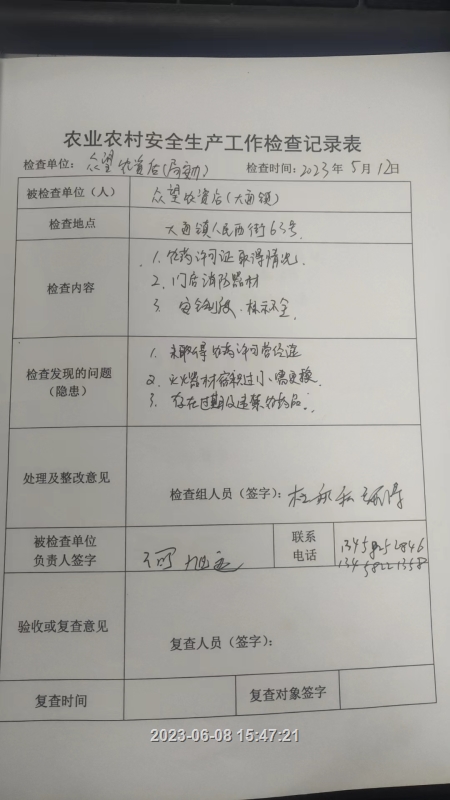 农业农村安全生产工作检查记录表
检查单位：众望农资店 检查时间：2023年5月12日
被检查单位（人） 众望农资店（大通镇）
检查地点 大通镇人民西街63号
检查内容
1. 农药许可证取得情况.
2. 门店消防器材
3. 标示不全
检查发现的问题（隐患）
1. 未取得农药许可营经证
2. 灭火器材容积过小、需更换
3. 存在过期及违禁农药品.
处理及整改意见
检查组人员（签字）：
被检查单位
负责人签字
联系
电话
验收或复查意见
复查人员（签字）：
复查时间 复查对象签字
2023-06-08 15:47:21